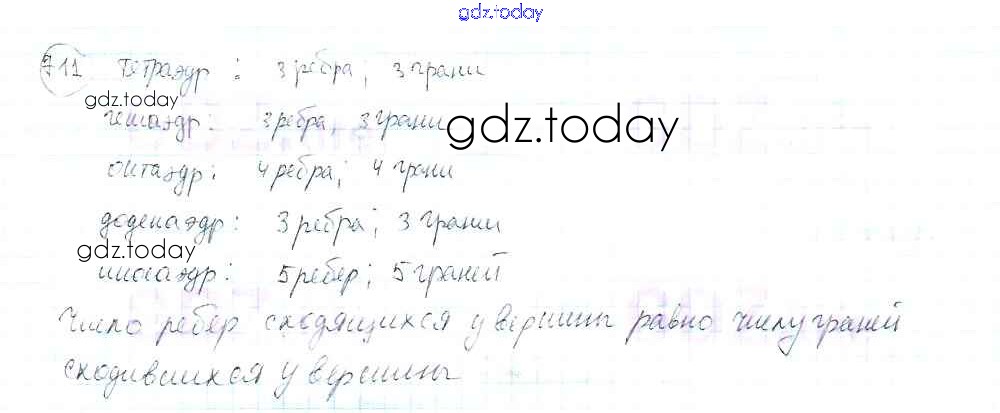 gdz.today
711 тетраэдр : 3 ребра; 3 грани
gdz.today
гексаэдр. 3 ребра, 3 грани
gdz.today
октаэдр: 4 ребра; 4 грани
додекаэдр: 3 ребра; 3 грани
gdz.today
икосаэдр: 5 ребер; 5 граней
Число ребер сходящихся у вершины равно числу граней
сходившихся у вершины